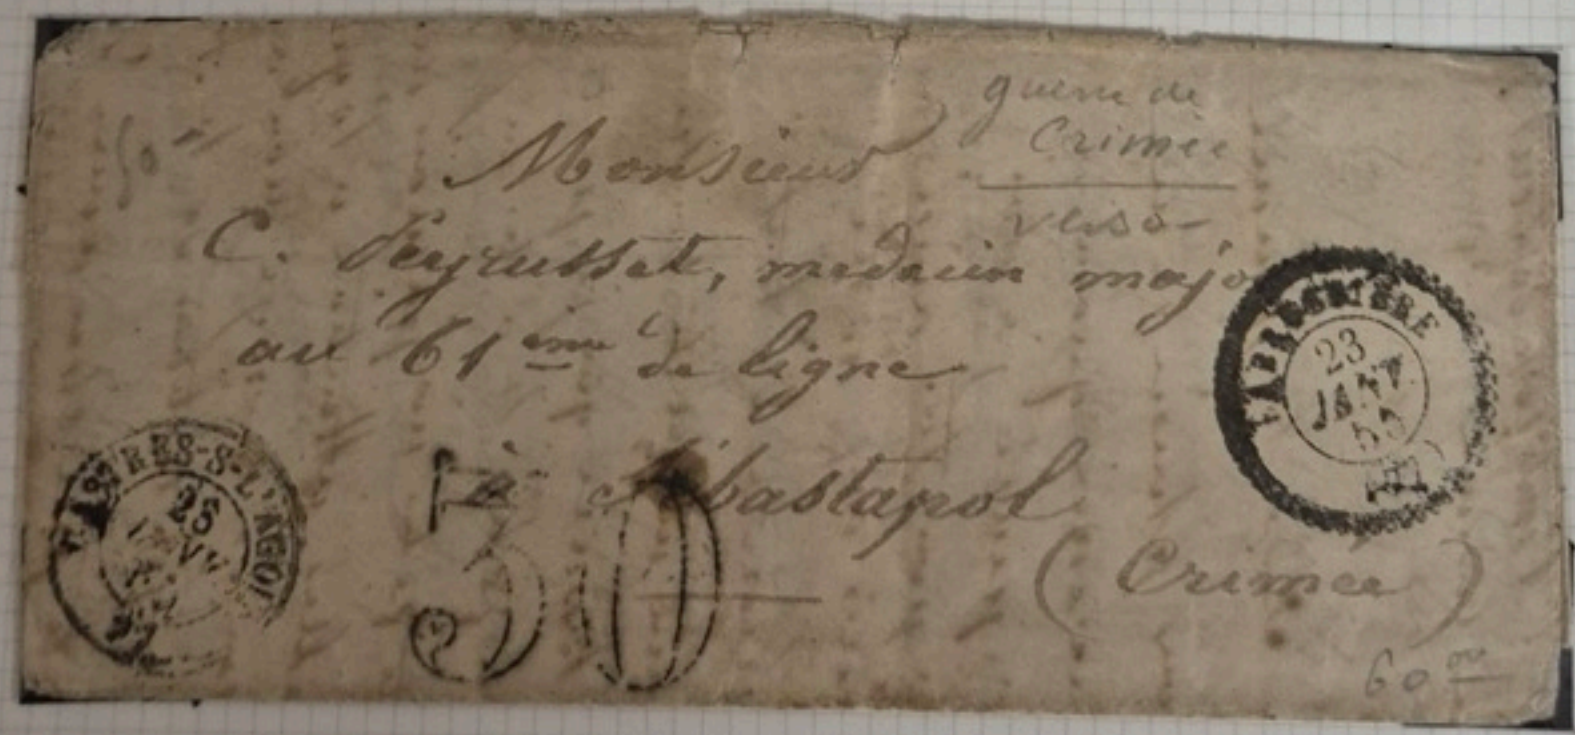 guerre de
Crimée
verso
50
Monsieur
C. Peyrusset, medecin major
au 61 eme de ligne
à Sébastapol
(Crimée)
30
23
JANV.
55
CASTRES-S-L'AGOUT
26
60